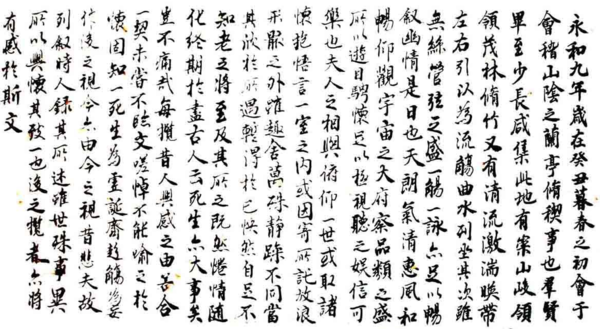 永和九年歲在癸丑暮春之初會于
會稽山陰之蘭亭脩稧事也羣賢
畢至少長咸集此地有崇山峻領
領茂林脩竹又有清流激湍暎帶
左右引以為流觴曲水列坐其次雖
無絲管弦之盛一觴一詠亦足以暢
敘幽情是日也天朗氣清惠風和
暢仰觀宇宙之天府察品類之盛
所以遊目騁懷足以極視聽之娛信可
樂也夫人之相與俯仰一世或取諸
懷抱悟言一室之內或因寄所託放浪
形骸之外雖趣舍萬殊靜躁不同當
其欣於所遇輕得於己怏然自足不
知老之將至及其所之既然惓情隨
化終期於盡古人云死生亦大事矣
豈不痛哉每攬昔人興感之由若合
一契未嘗不臨文嗟悼不能喻之於
懷固知一死生為虛誕齊彭觴為妄
作後之視今亦由今之視昔悲夫故
列敘時人錄其所述雖世殊事異
所以興懷其致一也後之攬者亦將
有感於斯文